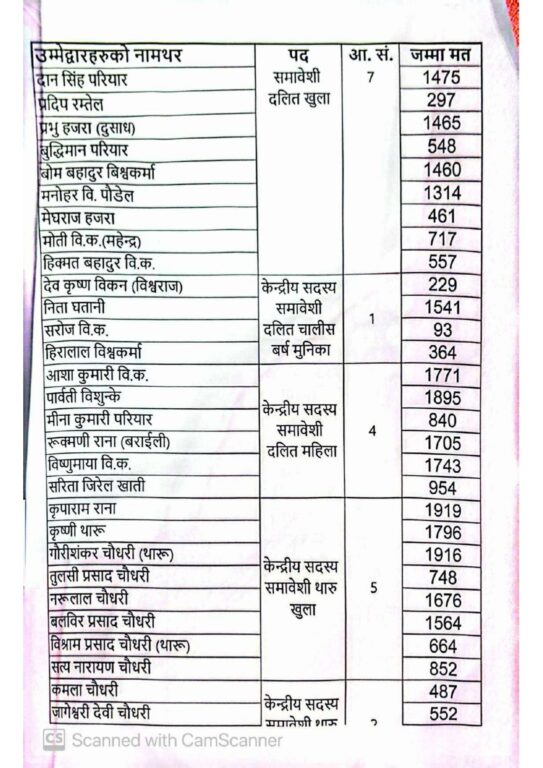 उम्मेद्वारहरुको नामथर पद आ. सं. जम्मा मत
दान सिंह परियार समावेशी 7 1475
प्रदिप रम्तेल दलित खुला 297
प्रभु हजरा (दुसाध) 1465
बुद्धिमान परियार 548
बोम बहादुर बिश्वकर्मा 1460
मनोहर वि. पौडेल 1314
मेघराज हजरा 461
मोती वि.क.(महेन्द्र) 717
हिक्मत बहादुर वि.क. 557
देव कृष्ण विकन (विश्वराज) केन्द्रीय सदस्य 229
निता घतानी समावेशी 1541
सरोज वि.क. दलित चालीस 1 93
हिरालाल विश्वकर्मा बर्ष मुनिका 364
आशा कुमारी वि.क. 1771
पार्वती विशुन्के 1895
मीना कुमारी परियार केन्द्रीय सदस्य 840
रूक्मणी राना (बराईली) समावेशी 4 1705
विष्णुमाया वि.क. दलित महिला 1743
सरिता जिरेल खाती 954
कृपाराम राना 1919
कृष्णी थारू 1796
गोरीशंकर चौधरी (थारू) केन्द्रीय सदस्य 1916
तुलसी प्रसाद चौधरी समावेशी थारु 5 748
नरूलाल चौधरी खुला 1676
बलविर प्रसाद चौधरी 1564
विश्राम प्रसाद चौधरी (थारू) 664
सत्य नारायण चौधरी 852
कमला चौधरी केन्द्रीय सदस्य 487
जागेश्वरी देवी चौधरी समावेशी थारु 2 552
CS Scanned with CamScanner